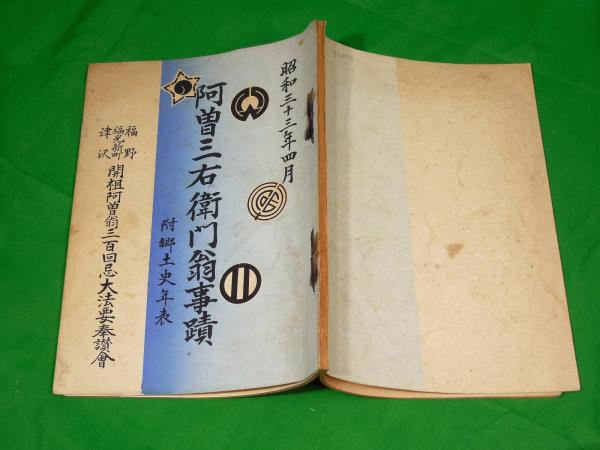 昭和三十三年四月
阿曽三右衛門翁事蹟
附郷土史年表
福野
福光新町
津沢
開祖阿曽翁三百回忌大法要奉讃會